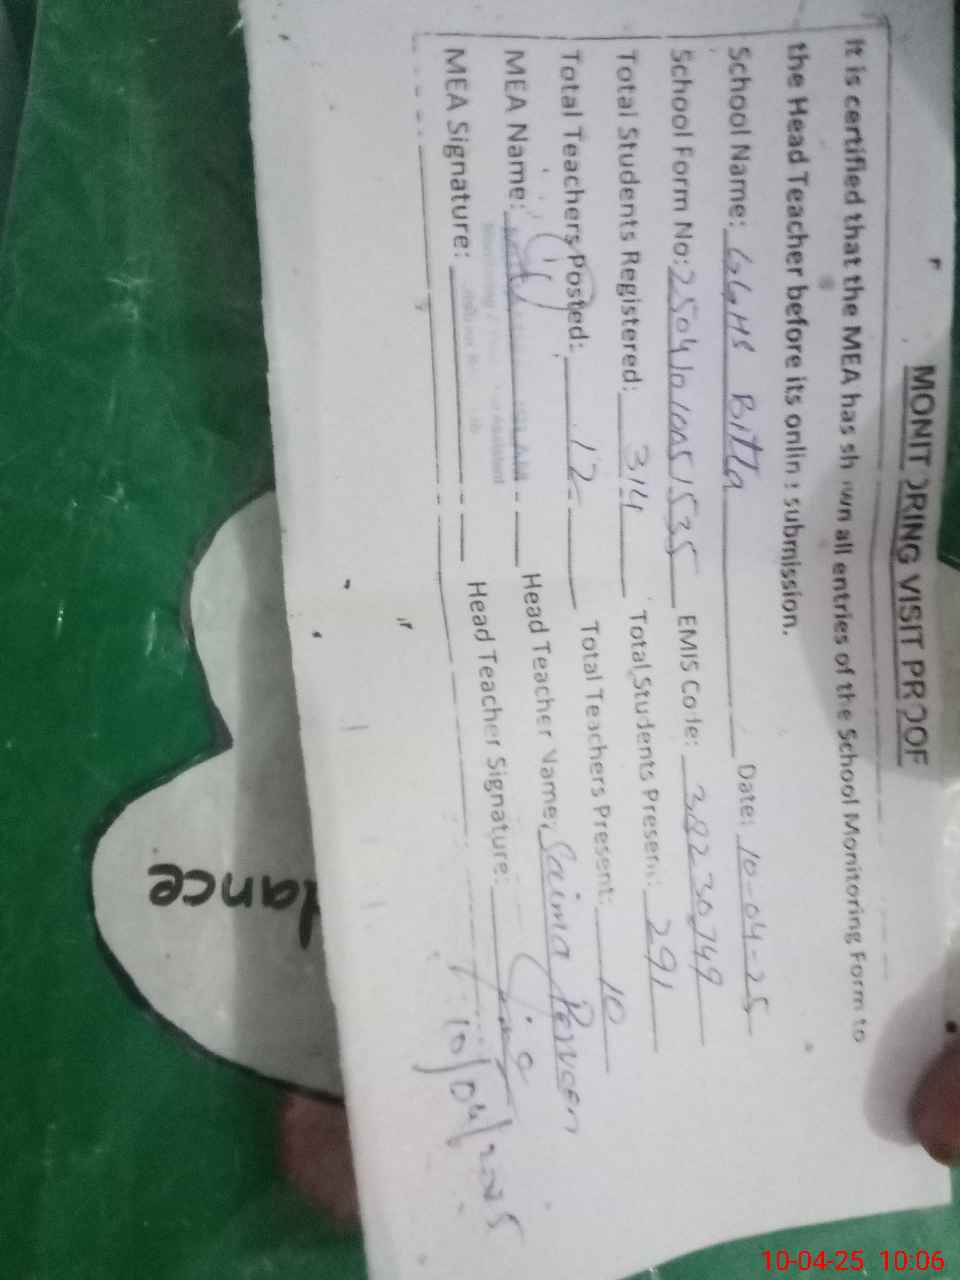 MONITORING VISIT PROOF
It is certified that the MEA has shown all entries of the School Monitoring Form to
the Head Teacher before its online submission.
School Name: GGHS Bitta Date: 10-04-25
School Form No: EMIS Code: 38230749
Total Students Registered: 314 Total Students Present: 291
Total Teachers Posted: 12 Total Teachers Present: 10
MEA Name: Head Teacher Name: Saima Parveen
MEA Signature: Head Teacher Signature:
10/04/2025
dance
10-04-25 10:06